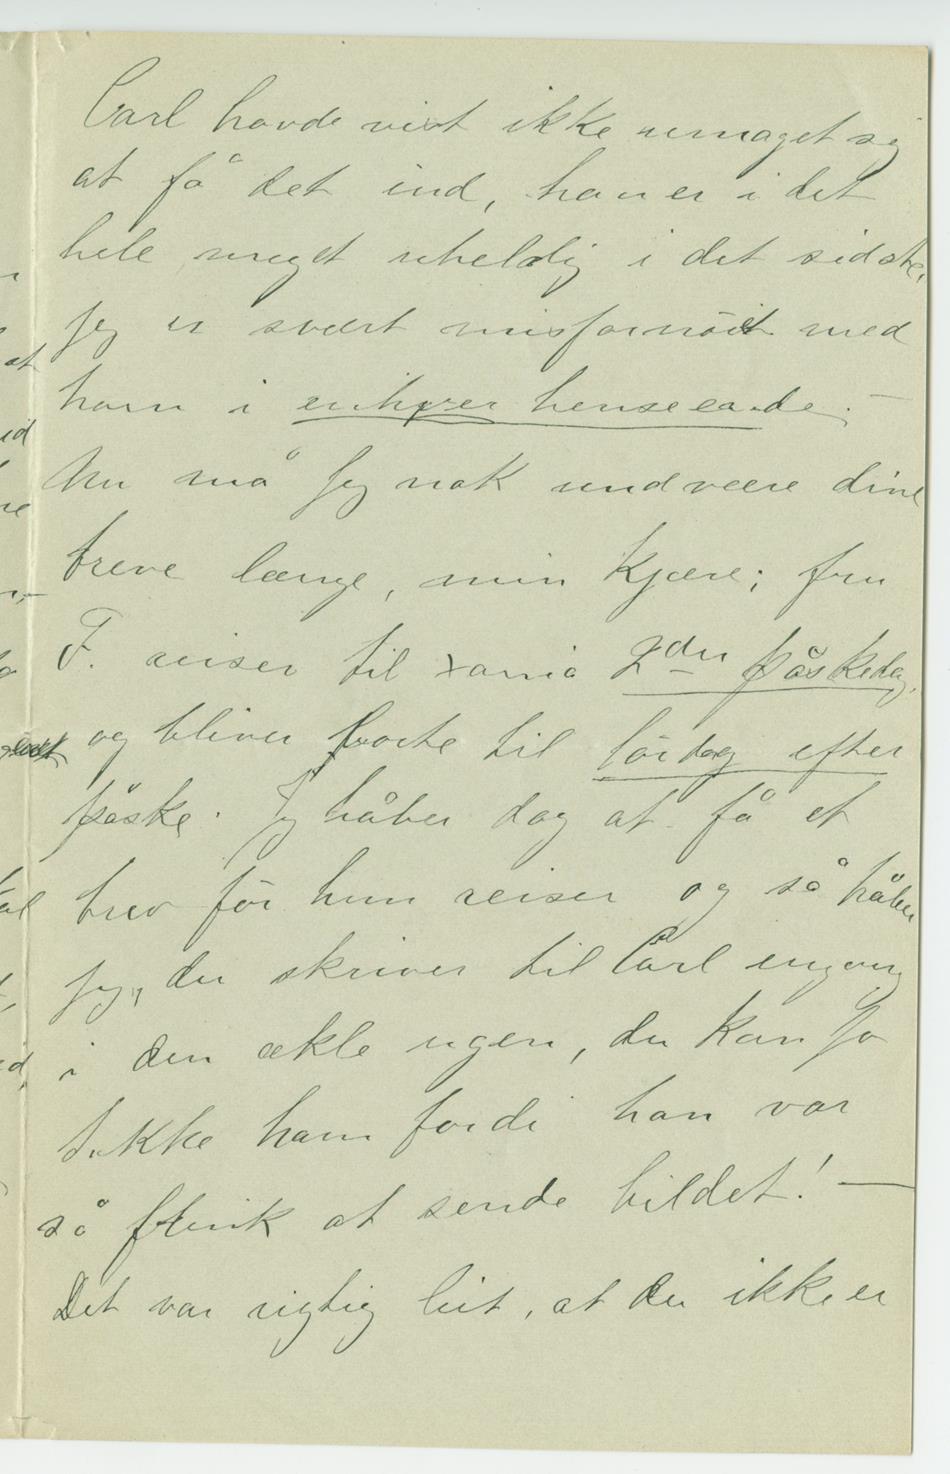 Carl havde vist ikke umaget sig
at få det ind, han er i det
hele meget uheldig i det sidste,
jeg er svært misfornöiet med
ham i enhver henseende. —
Nu må jeg nok undvære dine
breve længe, min kjære; fru
F. reiser til Xania 2den påskedag,
og bliver borte til lördag efter
påske. Jeg håber dog at få et
brev för hun reiser og så håber
jeg, du skriver til Carl engang
i den ækle ugen, du kan jo
takke ham fordi han var
så flink at sende bildet! —
Det var rigtig leit, at du ikke er